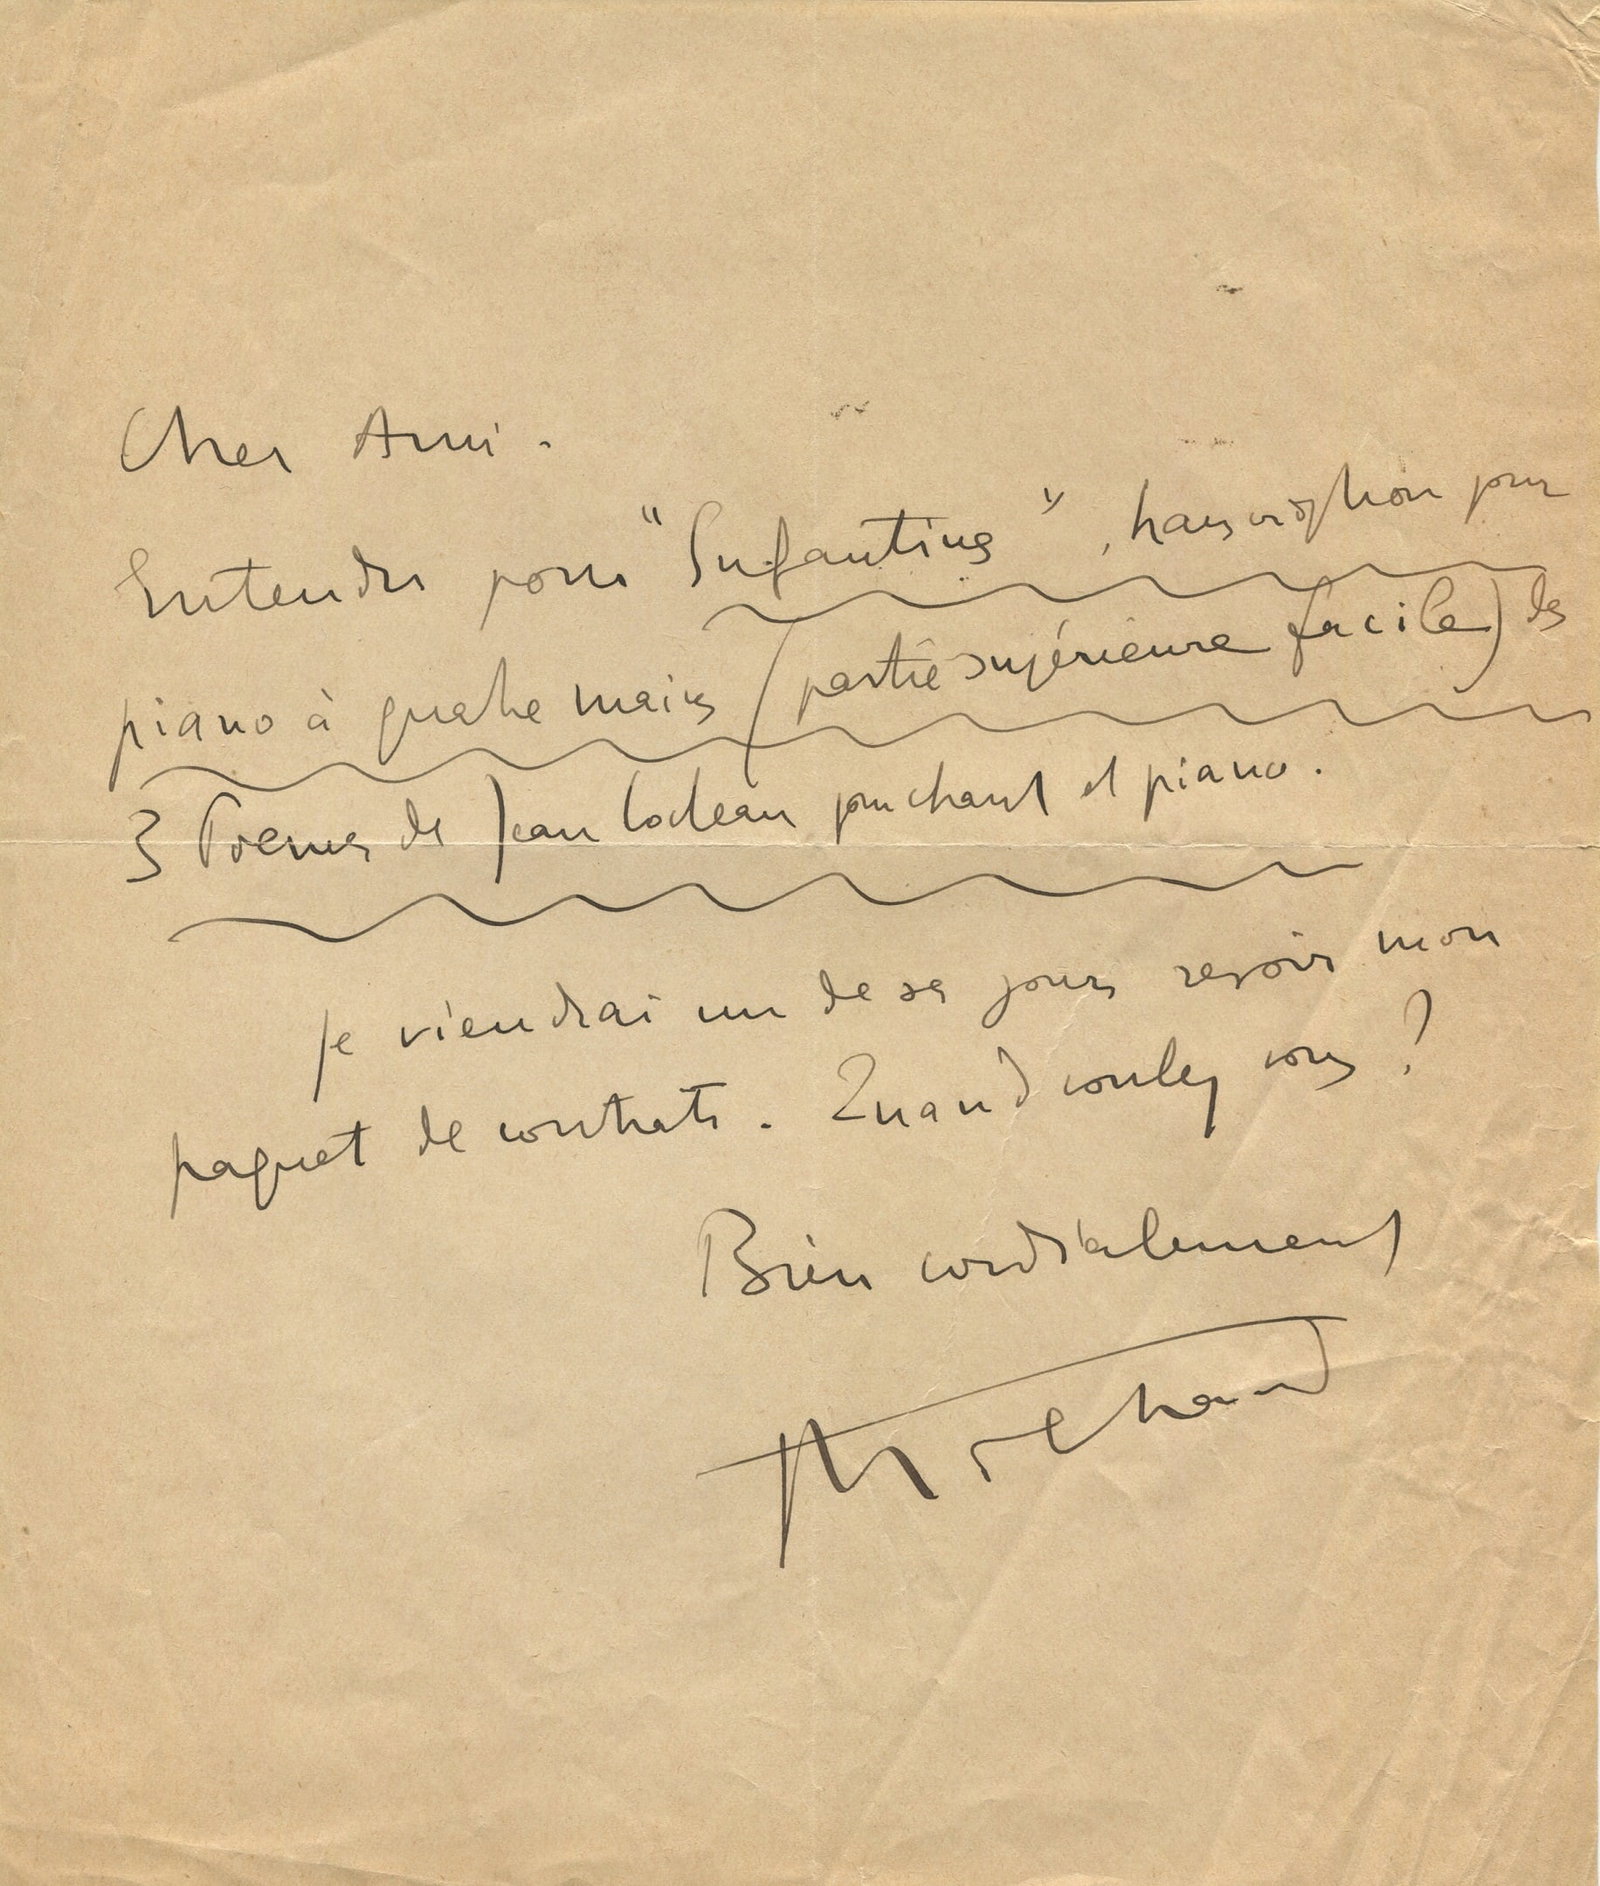 Cher Ami.
Entendu pour "Enfantines", transcription pour
piano à quatre mains (partie supérieure facile) des
3 Poemes de Jean Cocteau pour chant et piano.
Je viendrai un de ses jours revoir mon
paquet de contrats. Quand voulez vous ?
Bien cordialement
Milhaud